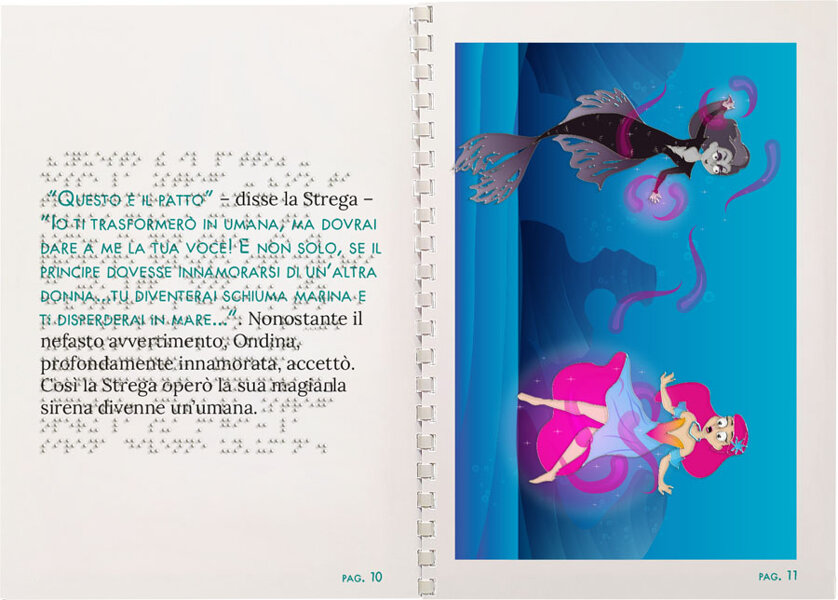 “Questo è il patto” – disse la Strega –
“Io ti trasformerò in umana, ma dovrai
dare a me la tua voce! E non solo, se il
principe dovesse innamorarsi di un’altra
donna...tu diventerai schiuma marina e
ti disperderai in mare...”. Nonostante il
nefasto avvertimento, Ondina,
profondamente innamorata, accettò.
Così la Strega operò la sua magia
sirena divenne un’umana.
pag. 10
pag. 11